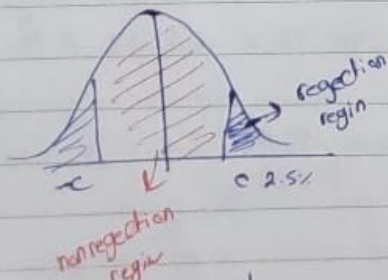 regection
regin
-c
c 2.5%
nonregection
regin